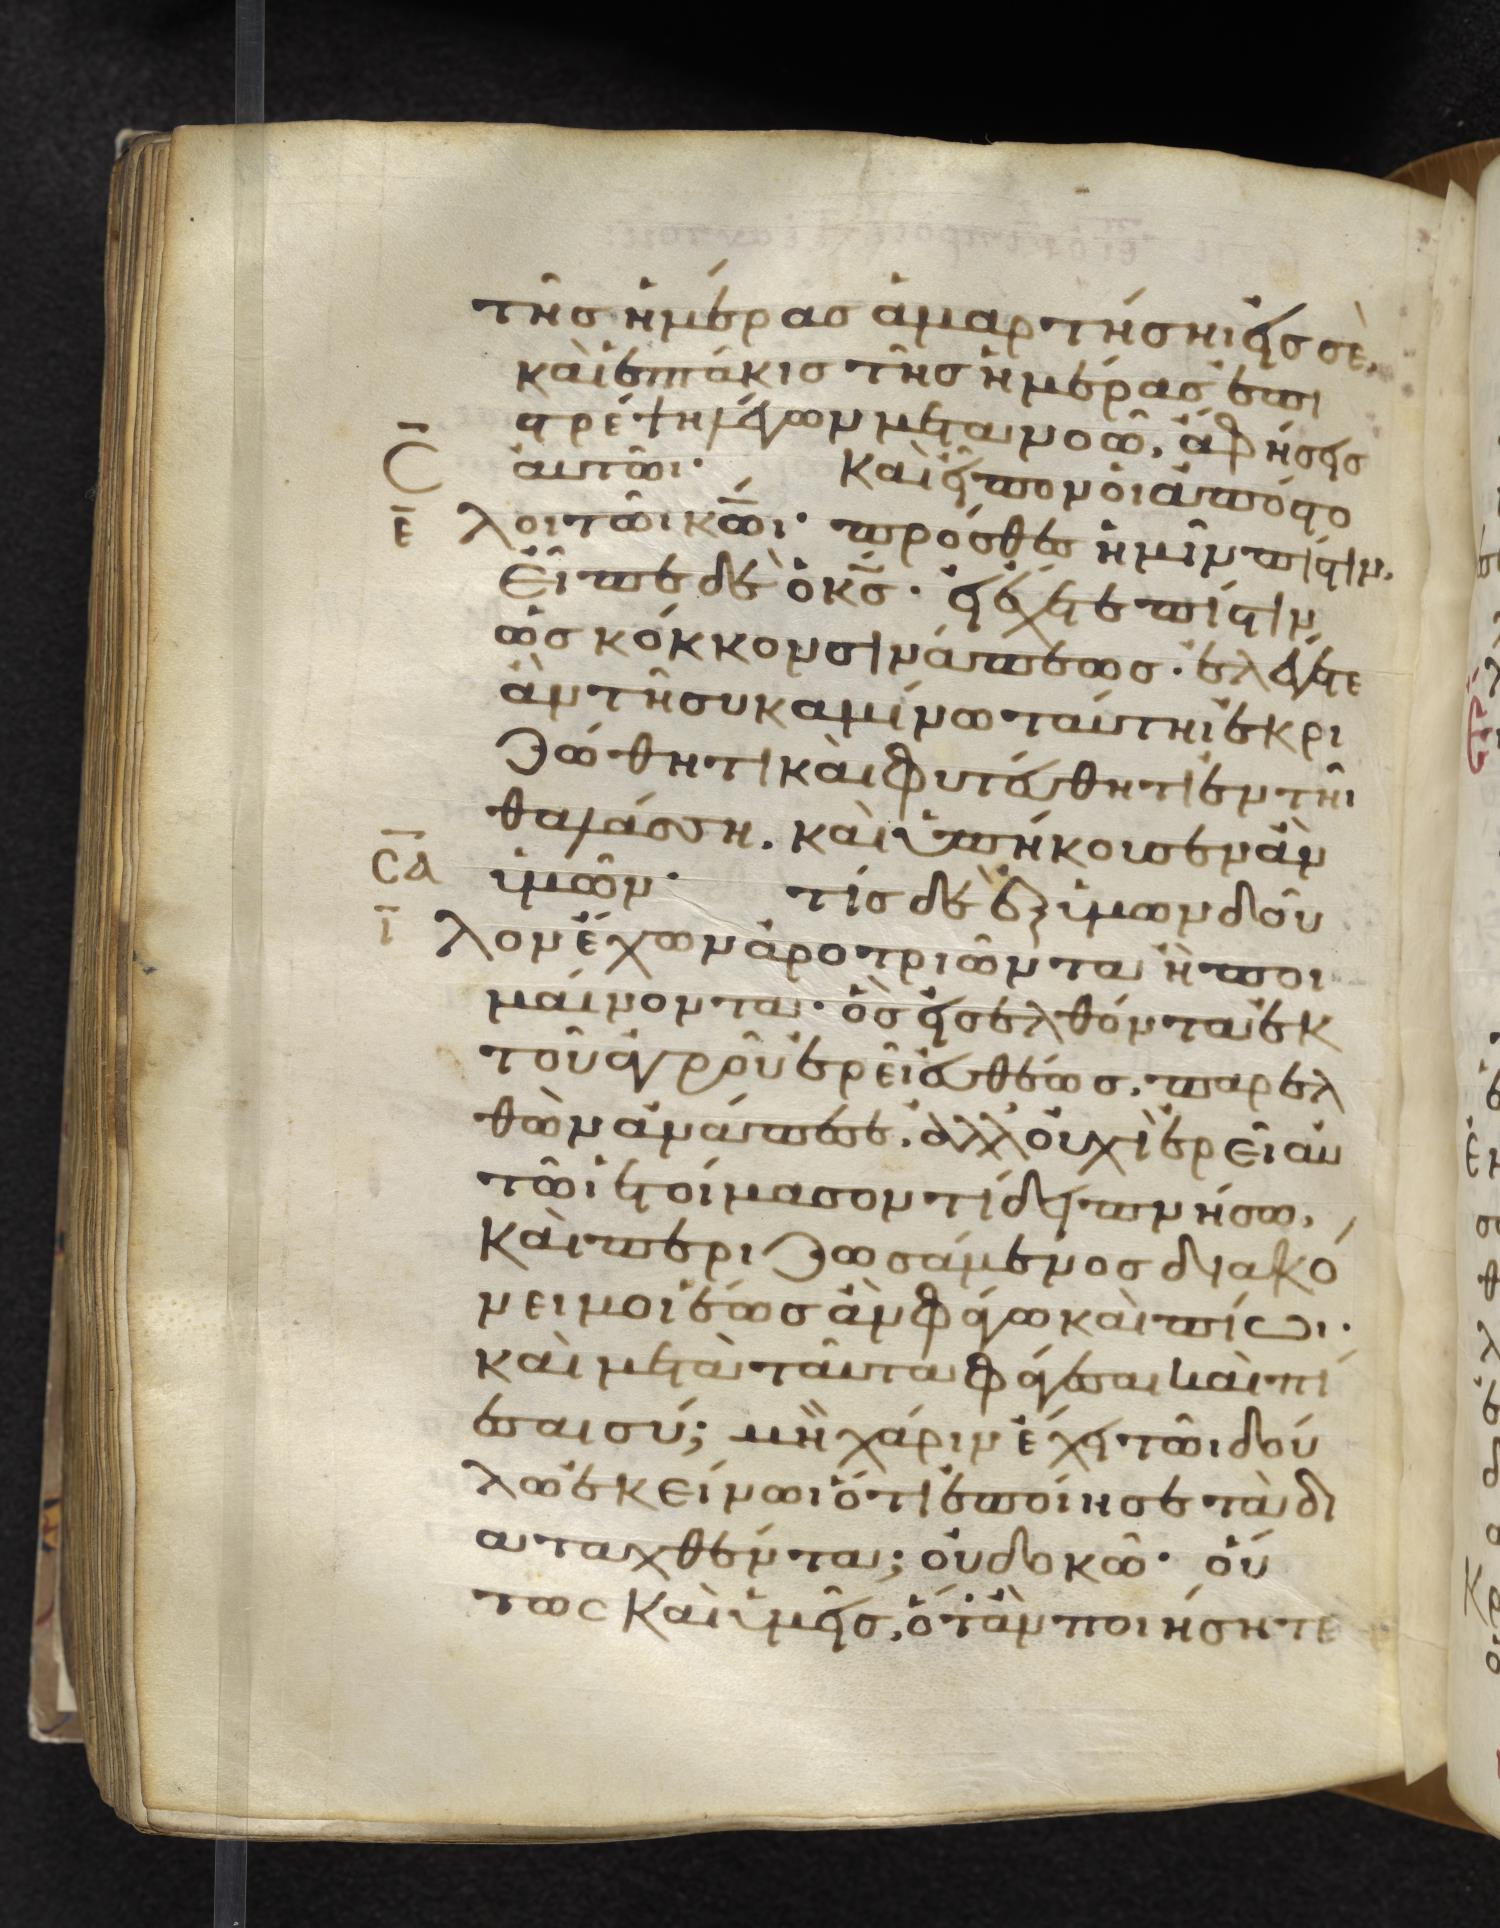 τῆς ἡμέρας ἁμαρτήσηι εἰς σὲ,
καὶ ἑπτάκις τῆς ἡμέρας ἐπι
στρέψηι λέγων μετανοῶ, ἀφήσεις
C̅ ἀυτῶι· Καὶ εἶπον ὁι ἀπόστο
ε̅ λοι τῶι κ̅ω̅ι· πρόσθες ἡμῖν πίστιν.
Εἶπε δὲ ὁ κ̅ς̅· εἰ ἔχετε πίστιν
ὡς κόκκον σινάπεως· ἐλέγετε
ἂν τῆ συκαμίνω ταύτηι ἐκρι
ζώθητι καὶ φυτεύθητι ἐν τῆι
θαλάσση. καὶ ὑπήκουσεν ἂν
C̅Α̅ ὑμῶν· τίς δὲ ἐξ ὑμων δοῦ
ι̅ λον ἔχων ἀροτριῶντα ἢ ποι
μαίνοντα· ὃς εἰσελθόντα ἐκ
τοῦ ἀγροῦ ἐρεῖ εὐθέως. παρελ
θὼν ἀνάπεσε. ἀλλ οὐχὶ ἐρεῖ ἀυ
τῶι ἑτοίμασον τί δειπνήσω,
Καὶ περιζωσάμενος διακό
νει μοι ἕως ἂν φάγω καὶ πίωι·
καὶ μετὰ ταῦτα φάγεσαι καὶ πί
εσαι σύ; μὴ χάριν ἔχει τῶι δού
λω ἐκείνωι ὅτι ἐποίησε τὰ δι
αταχθέντα; ὀυ δοκῶ· ὅυ
τως Καὶ ὑμεῖς, ὅταν ποιήσητε